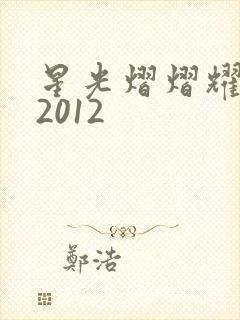 星光熠熠耀
2012
鄭浩